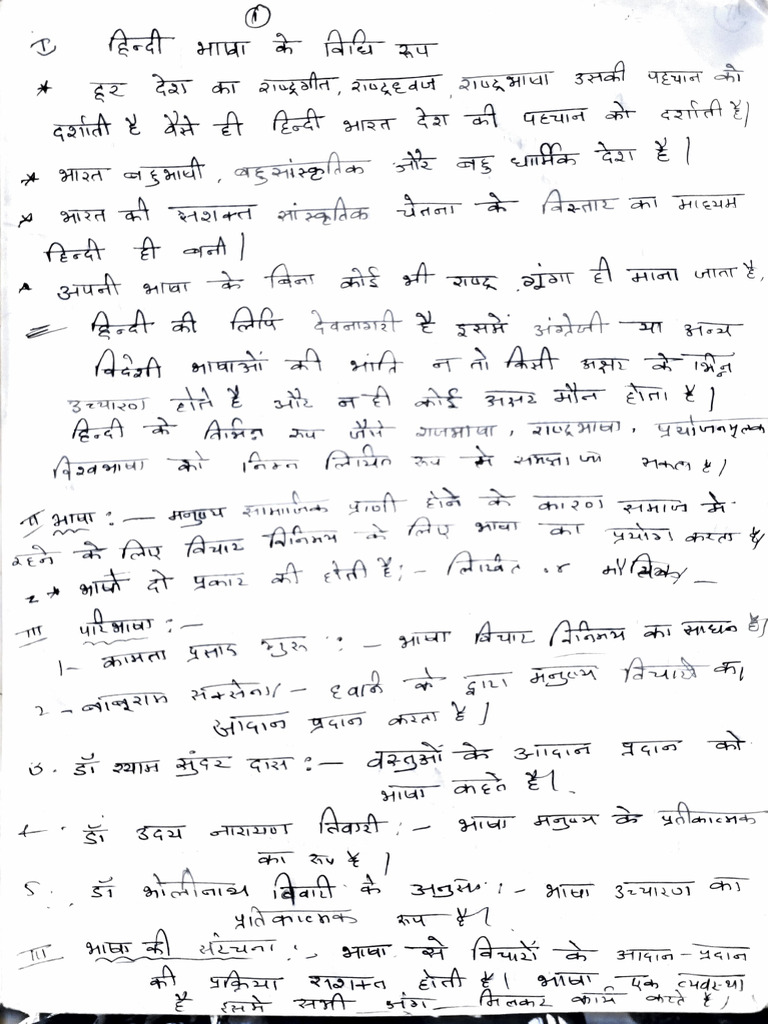 1
I हिन्दी भाषा के विधि रूप
* हर देश का राष्ट्रगीत, राष्ट्रध्वज, राष्ट्रभाषा उसकी पहचान को
दर्शाती है वैसे ही हिन्दी भारत देश की पहचान को दर्शाती है|
* भारत बहुभाषी, बहुसांस्कृतिक और बहु धार्मिक देश है |
* भारत की सशक्त सांस्कृतिक चेतना के विस्तार का माध्यम
हिन्दी ही बनी |
* अपनी भाषा के बिना कोई भी राष्ट्र गूंगा ही माना जाता है,
= हिन्दी की लिपि देवनागरी है इसमें अंग्रेजी या अन्य
विदेशी भाषाओं की भांति न तो किसी अक्षर के भिन्न
उच्चारण होते है और न ही कोई अक्षर मौन होता है |
हिन्दी के विभिन्न रूप जैसे राजभाषा, राष्ट्रभाषा, प्रयोजनमूलक
विश्वभाषा को निम्न लिखित रूप मे समझा जा सकता है |
II भाषा :- मनुष्य सामाजिक प्राणी होने के कारण समाज मे
रहने के लिए विचार विनिमय के लिए भाषा का प्रयोग करता है
* भाषे दो प्रकार की होती है; - लिखित or मौखिक
III परिभाषा :-
1- कामता प्रसाद गुरु :- भाषा विचार विनिमय का साधन है|
2- बाबूराम सक्सेना - ध्वनि के द्वारा मनुष्य विचारो का
आदान प्रदान करता है |
3. डॉ श्याम सुंदर दास :- वस्तुओं के आदान प्रदान को
भाषा कहते है |.
4. डॉ उदय नारायण तिवारी :- भाषा मनुष्य के प्रतीकात्मक
का रूप है |
5. डॉ भोलीनाथ तिवारी के अनुसार :- भाषा उच्चारण का
प्रतिकात्मक रूप है |
III भाषा की संरचना :- भाषा से विचारों के आदान-प्रदान
की प्रक्रिया सशक्त होती है | भाषा एक व्यवस्था
है इसमे सभी अंग मिलकर कार्य करते है |